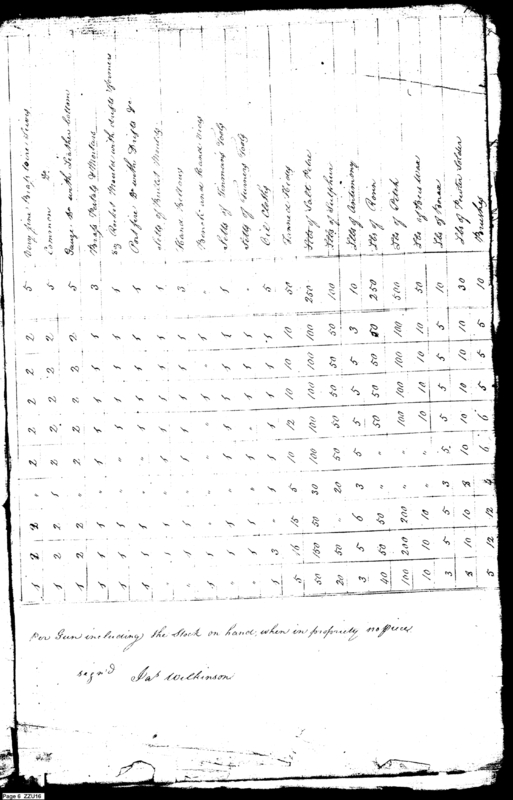 Very fine Brass Wire Sieves 5 2 2 2 2 2 " 2 2 1
Common do 5 2 2 2 2 2 1 2 2 1
Gauze do with Leather bottom 5 2 2 2 2 2 " 2 2 1
Brass Pestels & Mortars 3 1 1 1 1 1 " 1 1 1
Rocket Moulds with drifts & formers 1 1 1 1 1 " " 1 1 1
Port fire do with Drifts &c 1 1 1 1 1 " " 1 1 1
Setts of Bullet Moulds 1 1 1 1 1 1 " 1 1 "
Hand Bellows 3 1 1 1 1 1 " 1 1 "
Bench and Hand Vices
Setts of Tinmans Tools 1 1 1 1 1 1
Setts of Turners Tools
Oil Cloths 5 1 1 1 1 1 1 1 3 1
50 10 10 10 12 10 5 15 16 5
lbs of Salt Petre 250 100 100 100 100 100 30 50 150 50
lbs of Sulphur 100 50 50 50 50 50 20 " 50 20
lbs of Antimony 10 3 5 5 5 5 3 6 5 3
lbs of Rosin 250 50 50 50 50 " " 50 50 40
lbs of Pitch 500 100 100 100 100 " " 200 200 100
lbs of 50 10 10 10 10 " " 10 10 10
lbs of Borax 10 5 5 5 5 5 3 5 5 3
lbs of Pewter Solder 30 10 10 10 10 10 8 10 10 8
Brushes 10 5 5 5 6 6 4 12 12 5
Per Gun including the Stock on hand, when in propriety no pieces
sign'd Jas Wilkinson
Page 6 ZZU16